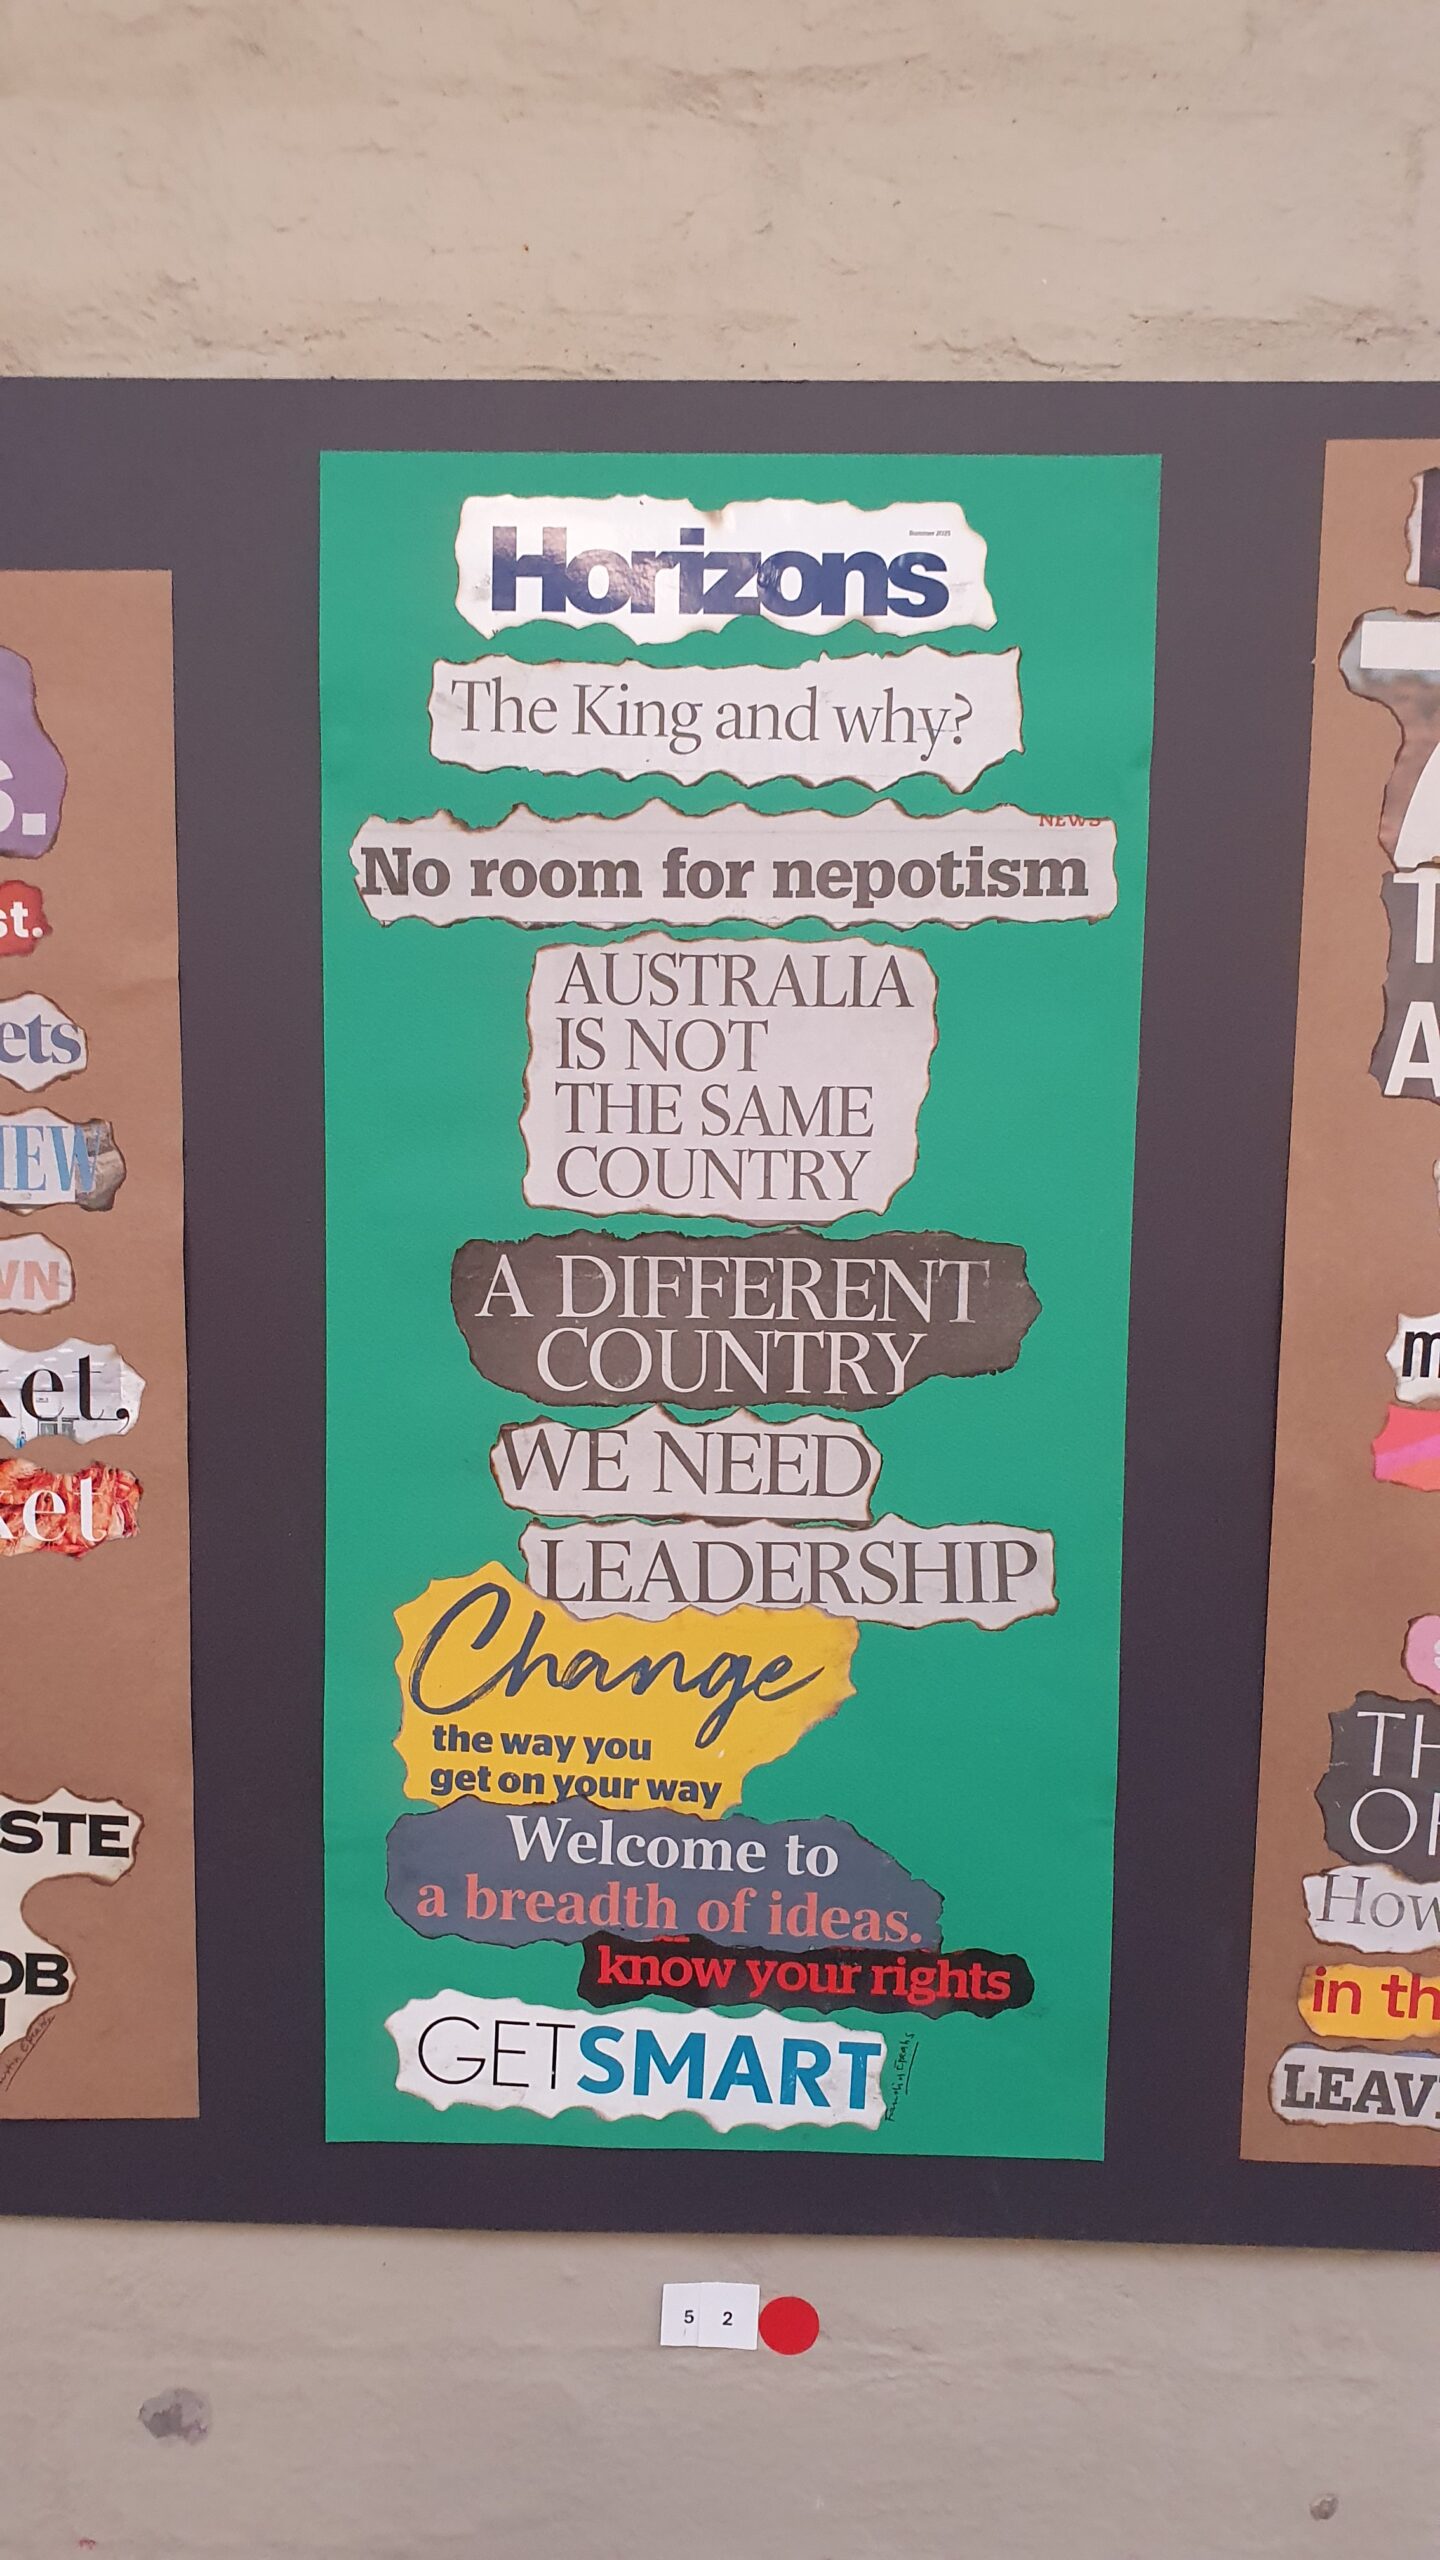 Horizons
Summer 2025
The King and why?
NEWS
No room for nepotism
AUSTRALIA
IS NOT
THE SAME
COUNTRY
A DIFFERENT
COUNTRY
WE NEED
LEADERSHIP
Change
the way you
get on your way
Welcome to
a breadth of ideas.
know your rights
GETSMART
5 2
s.
st.
ets
IEW
WN
ket,
ket
STE
OB
T
A
m
TH
OF
How
in th
LEAV